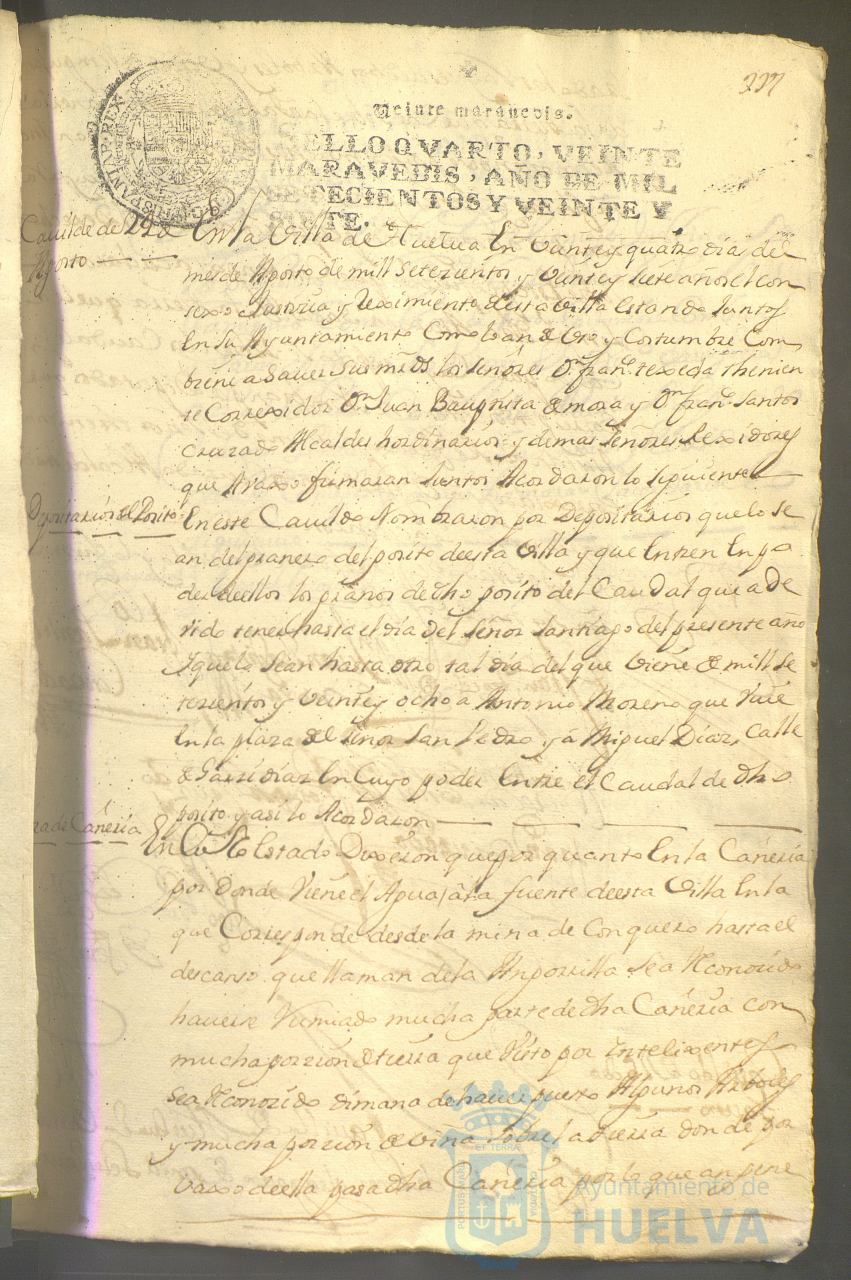 227
HISPANIAR·REX
Veinte maravedis.
SELLO QVARTO, VEINTE
MARAVEDIS, AÑO DE MIL
SETECIENTOS Y VEINTE Y
SIETE.
Cavilde de 24 de
Agosto
En la Villa de Huelva En Veinte y quatro dia del
mes de Agosto de mill setezientos y Veinte y siete años el con
sexo Justizia y reximiento desta Villa estando Juntos
En su Ayuntamiento Como lo an de Uso y Costumbre Com
biene a saver sus mrds los señores Dn. fran. texeda thenien
te Correxidor Dn Juan Bauptista de mora y Dn fran. santos
cruzado Alcaldes hordinarios y demas señores Rexidores
que Avaxo firmaran Juntos Acordaron lo siguiente
Depositarios del Posito
En este Cavildo Nombraron por Depositarios que lo se
an del granero del posito deesta Villa y que Entren En po
der de ellos los granos de dho posito del Caudal que a de
vido tener hasta el dia del señor santiago del presente año
y que lo sean hasta otro tal dia del que viene de mill se
tezientos y Veinte y ocho a Antonio Moreno que vive
En la plaza del señor san Pedro y a Miguel Diaz, Calle
de Garzi diaz En Cuyo poder Entre el Caudal de dho
posito y asi lo Acordaron
ra de Cañeria
En Este Estado Dixeron que por quanto En la Cañeria
por donde Viene el Agua a la fuente deesta Villa En la
que Corresponde desde la mina de Conquero hasta el
descanso que llaman de la Anporilla sea Reconozido
haverse Vumiado mucha parte de dha Cañeria con
mucha porzion de tierra que Visto por intelixentes
sea Reconozido dimana de haver puesto Algunos Arboles
y mucha porzion de vina sobre la tierra donde por
vaxo deella pasa dha Cañeria por lo que an pene
Ayuntamiento de
HUELVA